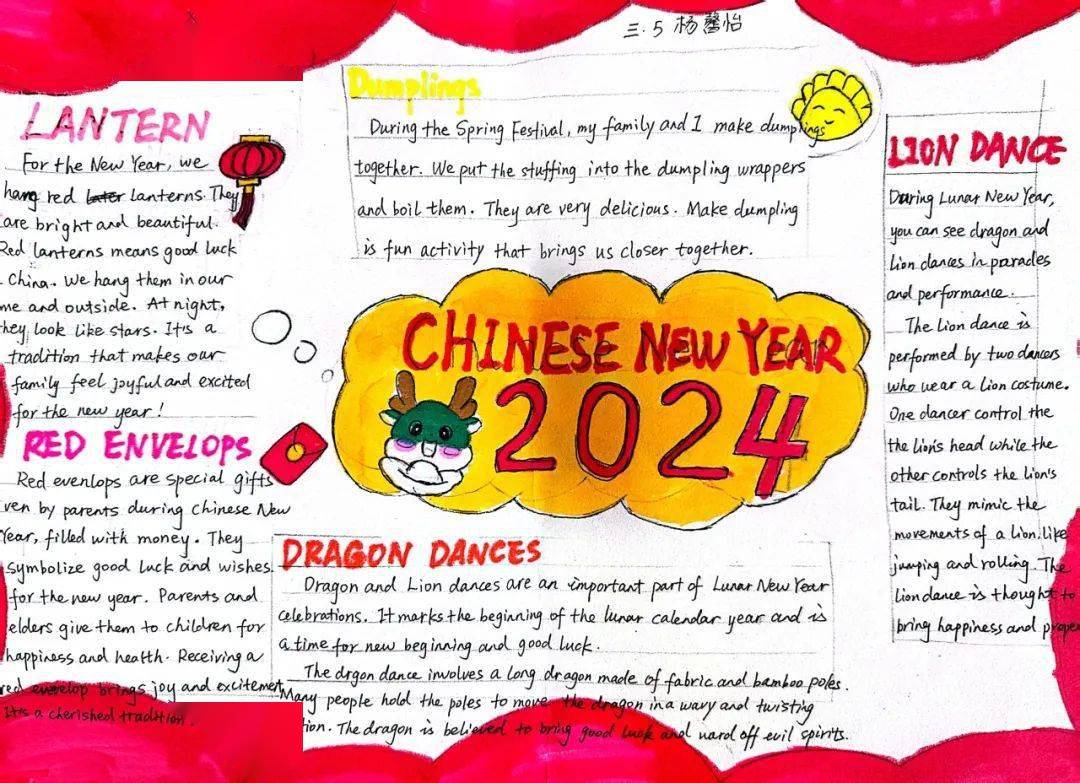 三.5 杨馨怡
LANTERN
For the New Year, we
hang red later lanterns. They
are bright and beautiful.
Red lanterns means good luck
China. We hang them in our
me and outside. At night,
hey look like stars. It's a
tradition that makes our
family feel joyful and excited
for the new year!
RED ENVELOPS
Red evenlops are special gifts
ven by parents during Chinese New
Year, filled with money. They
symbolize good luck and wishes
for the new year. Parents and
elders give them to children for
happiness and health. Receiving a
red envelop brings joy and excitement
It's a cherished tradition.
Dumplings
During the Spring Festival, my family and I make dumplings
together. We put the stuffing into the dumpling wrappers
and boil them. They are very delicious. Make dumpling
is fun activity that brings us closer together.
CHINESE NEW YEAR
2024
DRAGON DANCES
Dragon and Lion dances are an important part of Lunar New Year
celebrations. It marks the beginning of the lunar calendar year and is
a time for new beginning and good luck.
The drgon dance involves a long dragon made of fabric and bamboo poles.
Many people hold the poles to move the dragon in a wavy and twisting
tion. The dragon is believed to bring good luck and ward off evil spirits.
LION DANCE
During Lunar New Year,
you can see dragon and
Lion dances in parades
and performance.
The Lion dance is
performed by two dancers
who wear a Lion costume.
One dancer control the
the lion's head while the
other controls the lion's
tail. They mimic the
movements of a lion, like
jumping and rolling. The
lion dance is thought to
bring happiness and proper